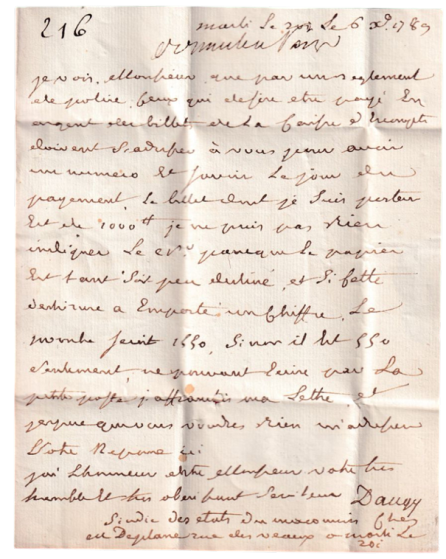 216
marli le roi Le 6 Xe. 1789
je vois, Monsieur que par un reglement
de police, Ceux qui desire etre payé En
argent des billets de La Caisse d'Escompte
doivent s'adresser à vous pour avoir
un numero Et savoir Le jour du
payement, Le billet dont je suis porteur
Est de 1000tt je ne puis pas bien
indiquer Le No. parceque Le papier
Est tant Soit peu dechiré, et Si Cette
dechirure a Emporté un Chiffre, Le
nombre seroit 1550, Sinon il Est 550
Seulement, ne pouvant Ecrire par La
petite poste j'affranchis ma Lettre, et
j'espere que vous voudrez bien m'adresser
Votre Reponse ici
jai L'honneur d'etre Monsieur votre tres
humble et tres obeissant Serviteur Daugy
Sindic des etats du maconnois Chez
rue des veaux a marli Le
roi